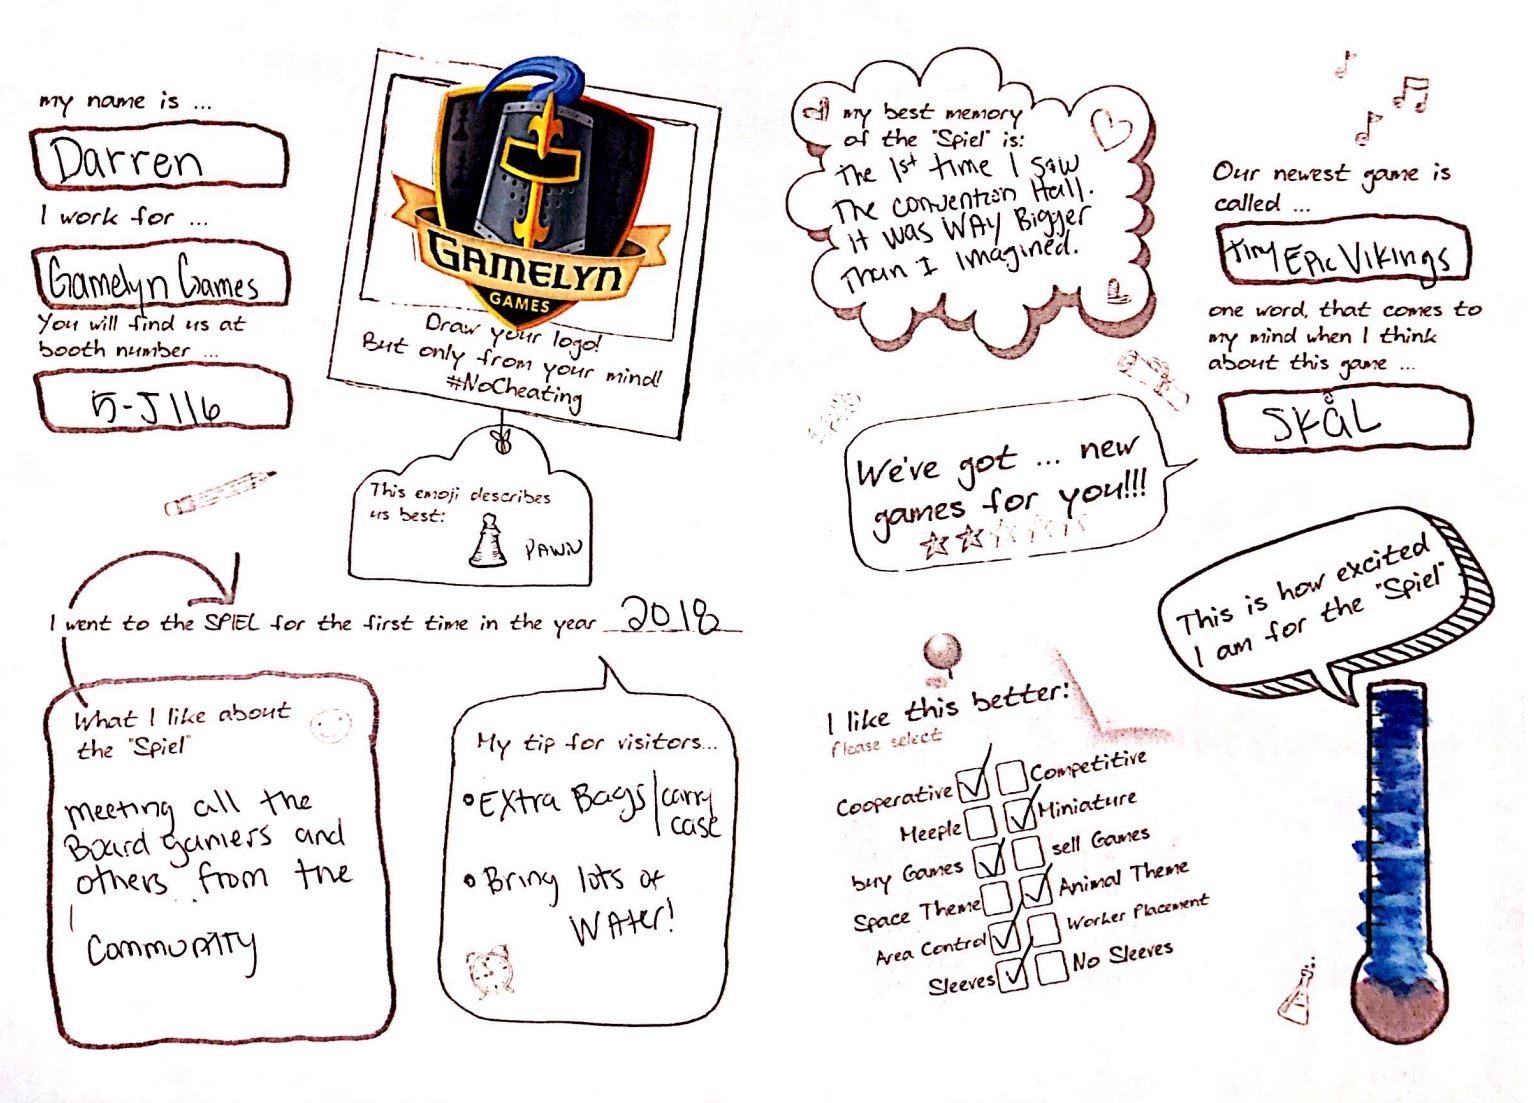 my name is ...
Darren
I work for ...
Gamelyn Games
You will find us at
booth number ...
5-J116
GAMELYN
GAMES
Draw your logo!
But only from your mind!
#NoCheating
This emoji describes
us best:
PAWN
I went to the SPIEL for the first time in the year 2018
What I like about
the "Spiel"
meeting all the
Board gamers and
others from the
Community
My tip for visitors...
• Extra Bags/carry
case
• Bring lots of
Water!
my best memory
of the "Spiel" is:
The 1st time I saw
The convention Hall.
it was WAY Bigger
Than I imagined.
We've got ... new
games for you!!!
Our newest game is
called ...
Tiny Epic Vikings
one word, that comes to
my mind when I think
about this game ...
SKÅL
This is how excited
I am for the "Spiel"
I like this better:
Please select
Cooperative Competitive
Meeple Miniature
buy Games sell Games
Space Theme Animal Theme
Area Control Worker Placement
Sleeves No Sleeves